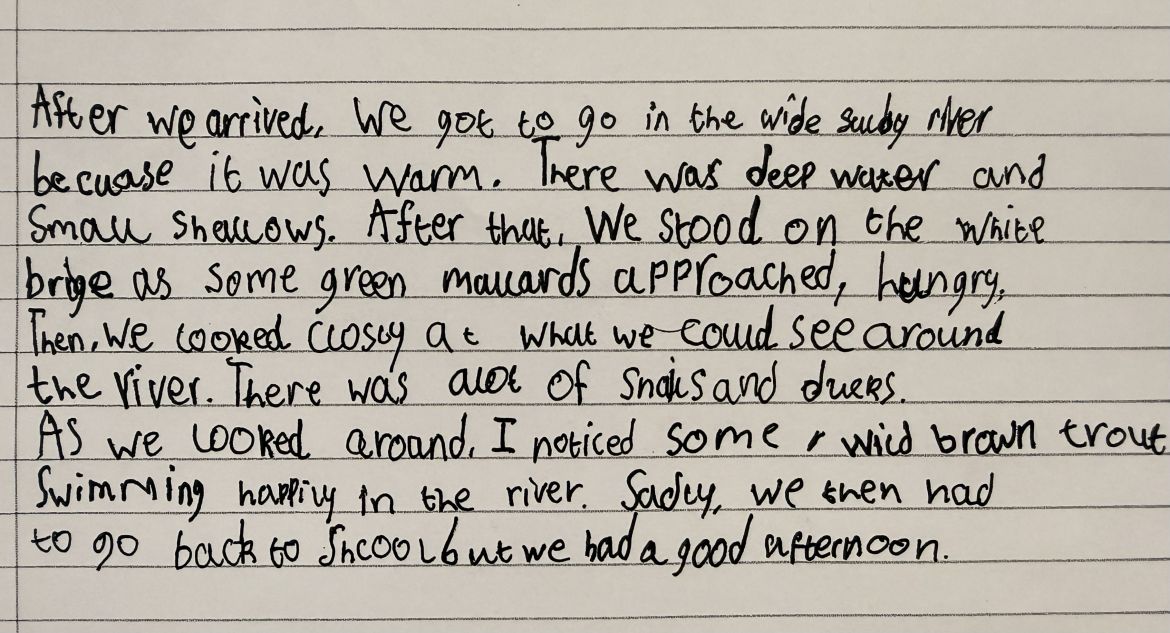 After we arrived, We got to go in the wide river
becuase it was warm. There was deep water and
Small shallows. After that, We stood on the white
brige as some green mallards approached, hungry.
Then, We looked closly at what we could see around
the river. There was alot of and ducks.
As we looked around, I noticed some wild brown trout
Swimming happily in the river. Sadly, we then had
to go back to Shcool but we had a good afternoon.